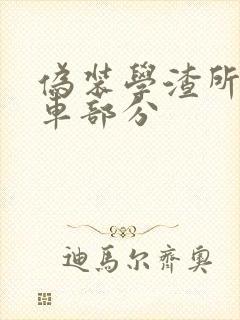 偽裝學渣所
車部分
迪馬尔齊奧